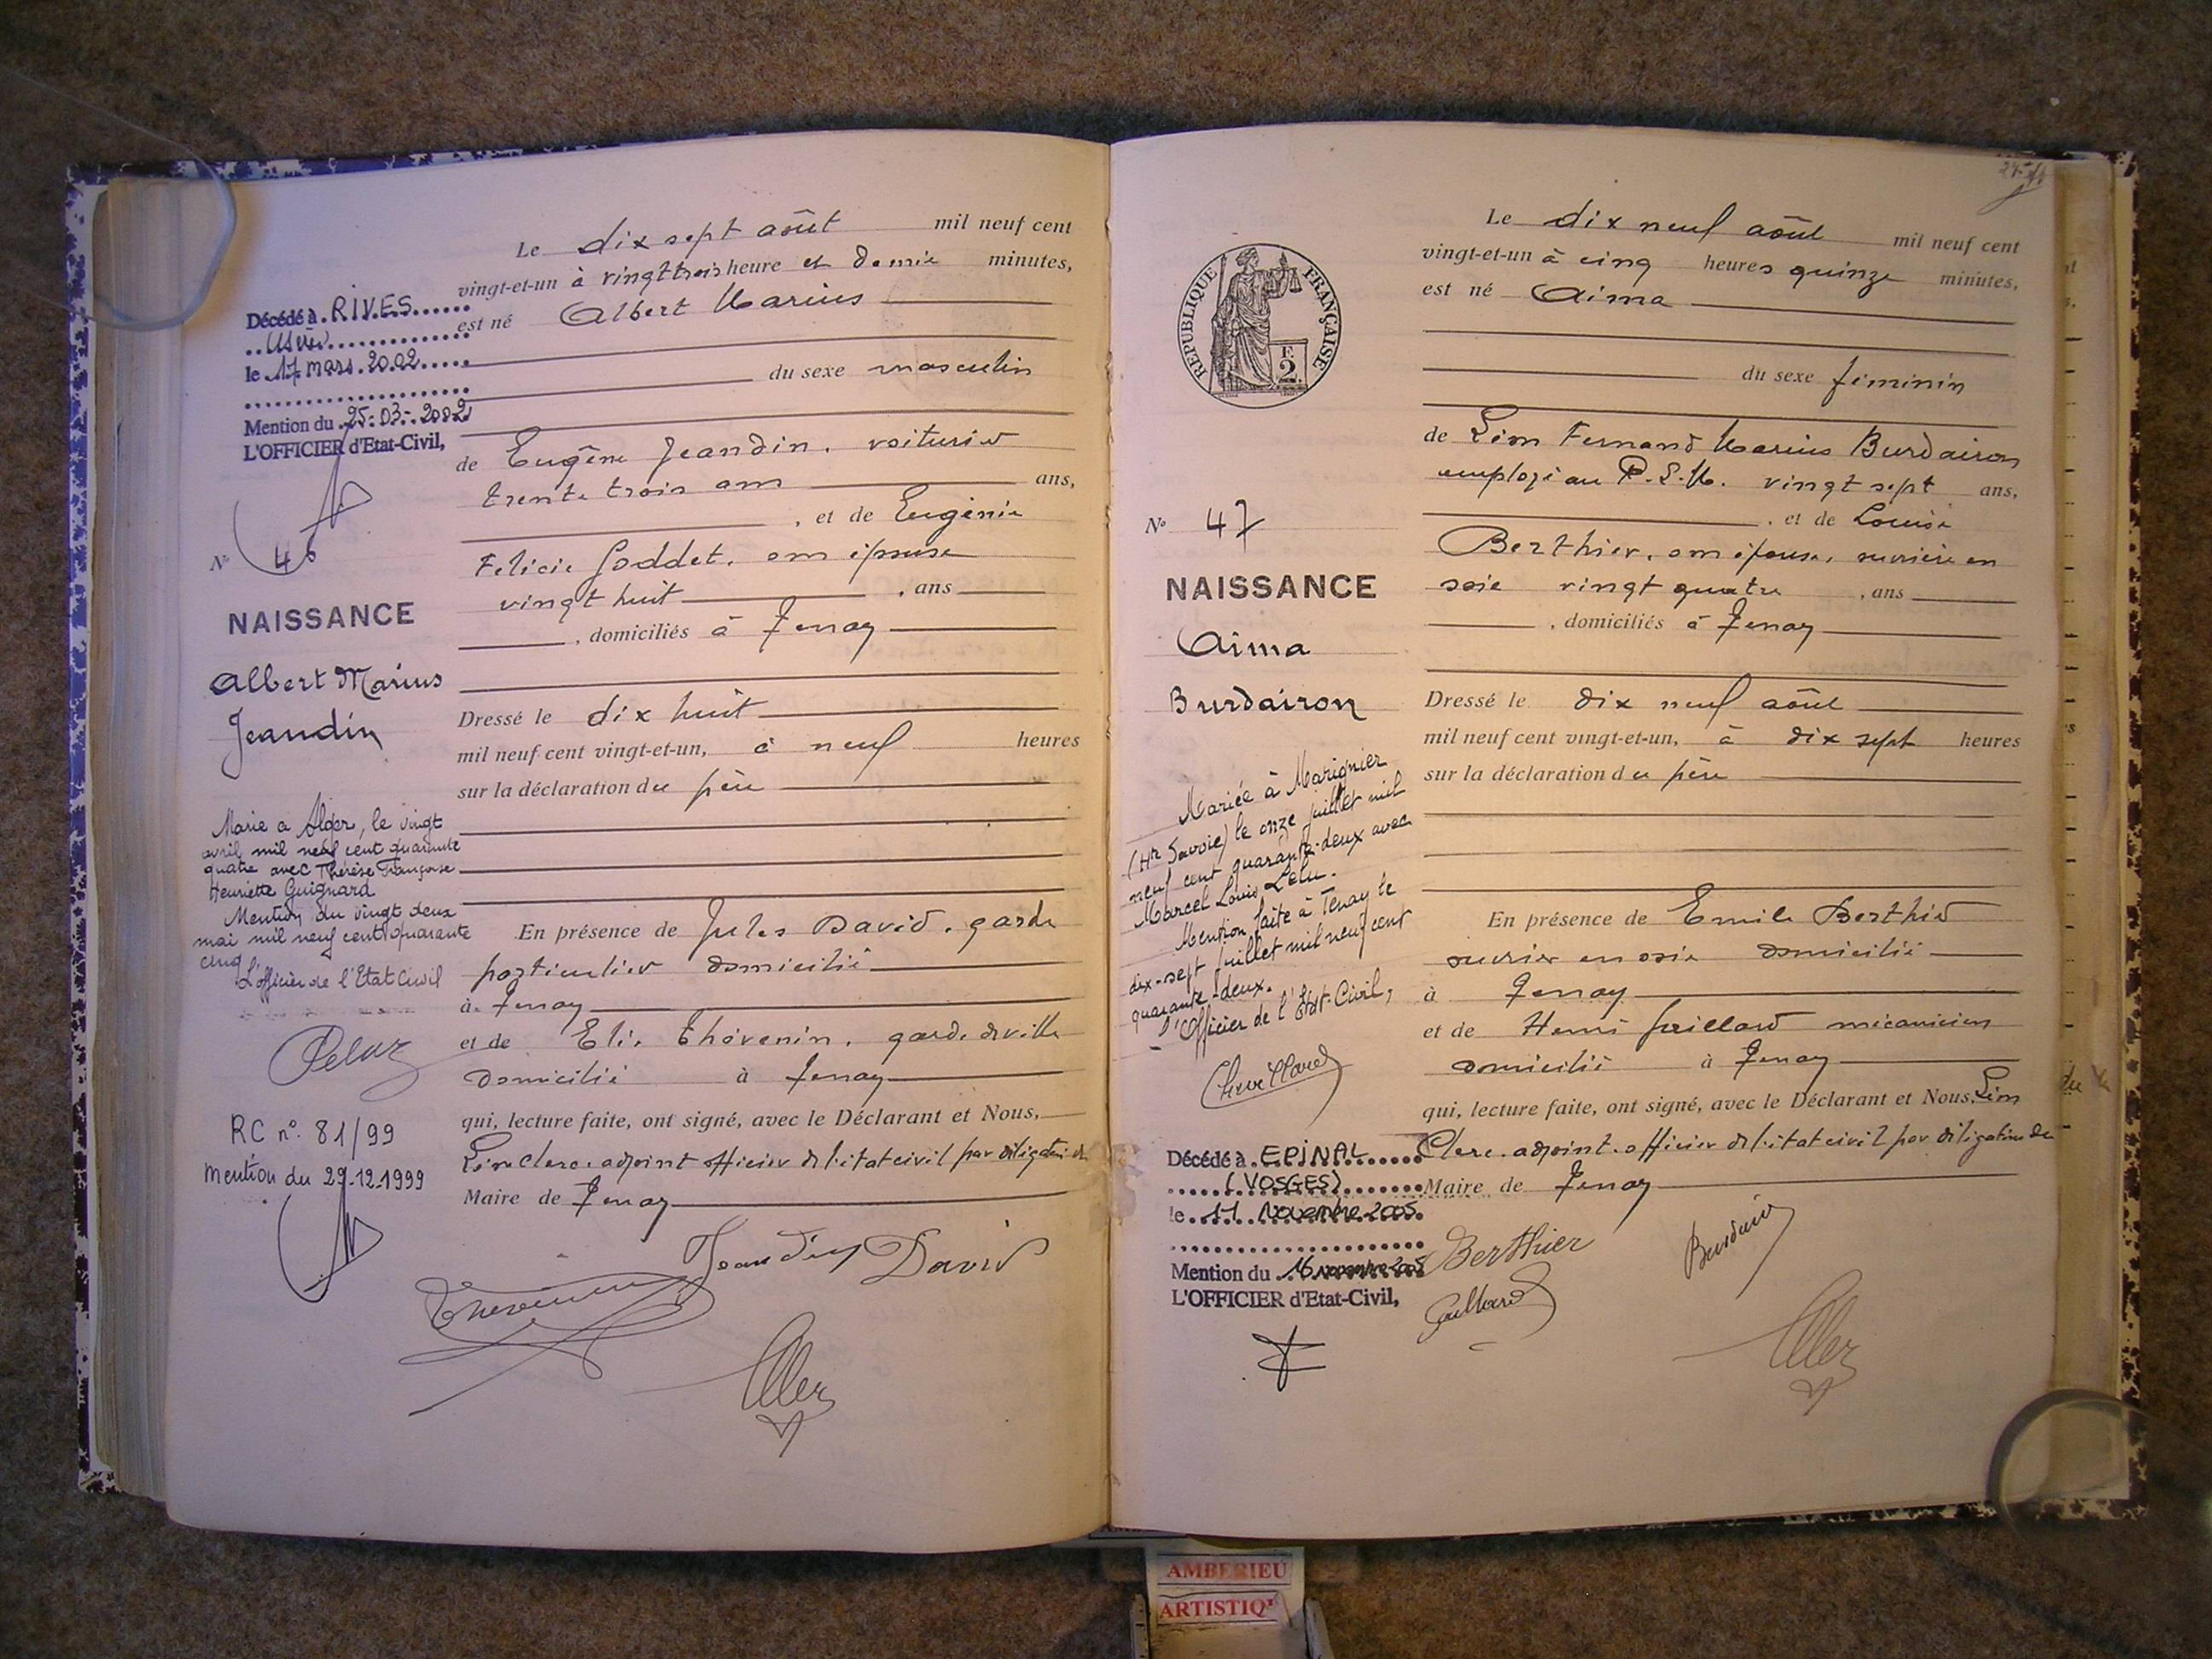 Le dix sept août mil neuf cent
vingt-et-un à vingt trois heure et demie minutes,
est né Albert Marius
du sexe masculin
de Eugène Jeandin, voiturier
trente trois ans ans,
, et de Eugénie
Felicie Goddet, son épouse
vingt huit , ans
, domiciliés à Tenay
Dressé le dix huit
mil neuf cent vingt-et-un, à neuf heures
sur la déclaration du père
En présence de Jules David, garde
particulier domicilié
à Tenay
et de Elie Thévenin, garde de ville
domicilié à Tenay
qui, lecture faite, ont signé, avec le Déclarant et Nous,
Léon Clerc, adjoint officier de l'état civil par délégation du
Maire de Tenay
Jeandin David
Thevenin
Décédé à RIVES
Isère
le 17 mars 2002
Mention du 25-03-2002
L'OFFICIER d'Etat-Civil,
N° 46
NAISSANCE
Albert Marius
Jeandin
Marié à Alger, le vingt
avril mil neuf cent quarante
quatre avec Thérèse Françoise
Henriette Guignard
Mention du vingt deux
mai mil neuf cent quarante
cinq
L'officier de l'Etat Civil
RC n° 81/99
Mention du 29-12-1999
Le dix neuf août mil neuf cent
vingt-et-un à cinq heures quinze minutes,
est né Aima
du sexe féminin
de Léon Fernand Marius Burdairon
employé au P.L.M. vingt sept ans,
, et de Louise
Berthier, son épouse, ouvrière en
soie vingt quatre , ans
, domiciliés à Tenay
Dressé le dix neuf août
mil neuf cent vingt-et-un, à dix sept heures
sur la déclaration du père
En présence de Emile Berthier
ouvrier en soie domicilié
à Tenay
et de Henri Gaillard mécanicien
domicilié à Tenay
qui, lecture faite, ont signé, avec le Déclarant et Nous, Léon
Clerc, adjoint officier de l'état civil par délégation du
Maire de Tenay
Berthier Burdairon
Gaillard
REPUBLIQUE FRANÇAISE
F.
2
N° 47
NAISSANCE
Aima
Burdairon
Mariée à Marignier
(Hte Savoie) le onze juillet mil
neuf cent quarante-deux avec
Marcel Louis Lelu.
Mention faite à Tenay le
dix-sept juillet mil neuf cent
quarante-deux.
L'Officier de l'Etat-Civil,
Décédé à EPINAL
(VOSGES)
le 11 Novembre 2005
Mention du 16 novembre 2005
L'OFFICIER d'Etat-Civil,
AMBERIEU
ARTISTIQ